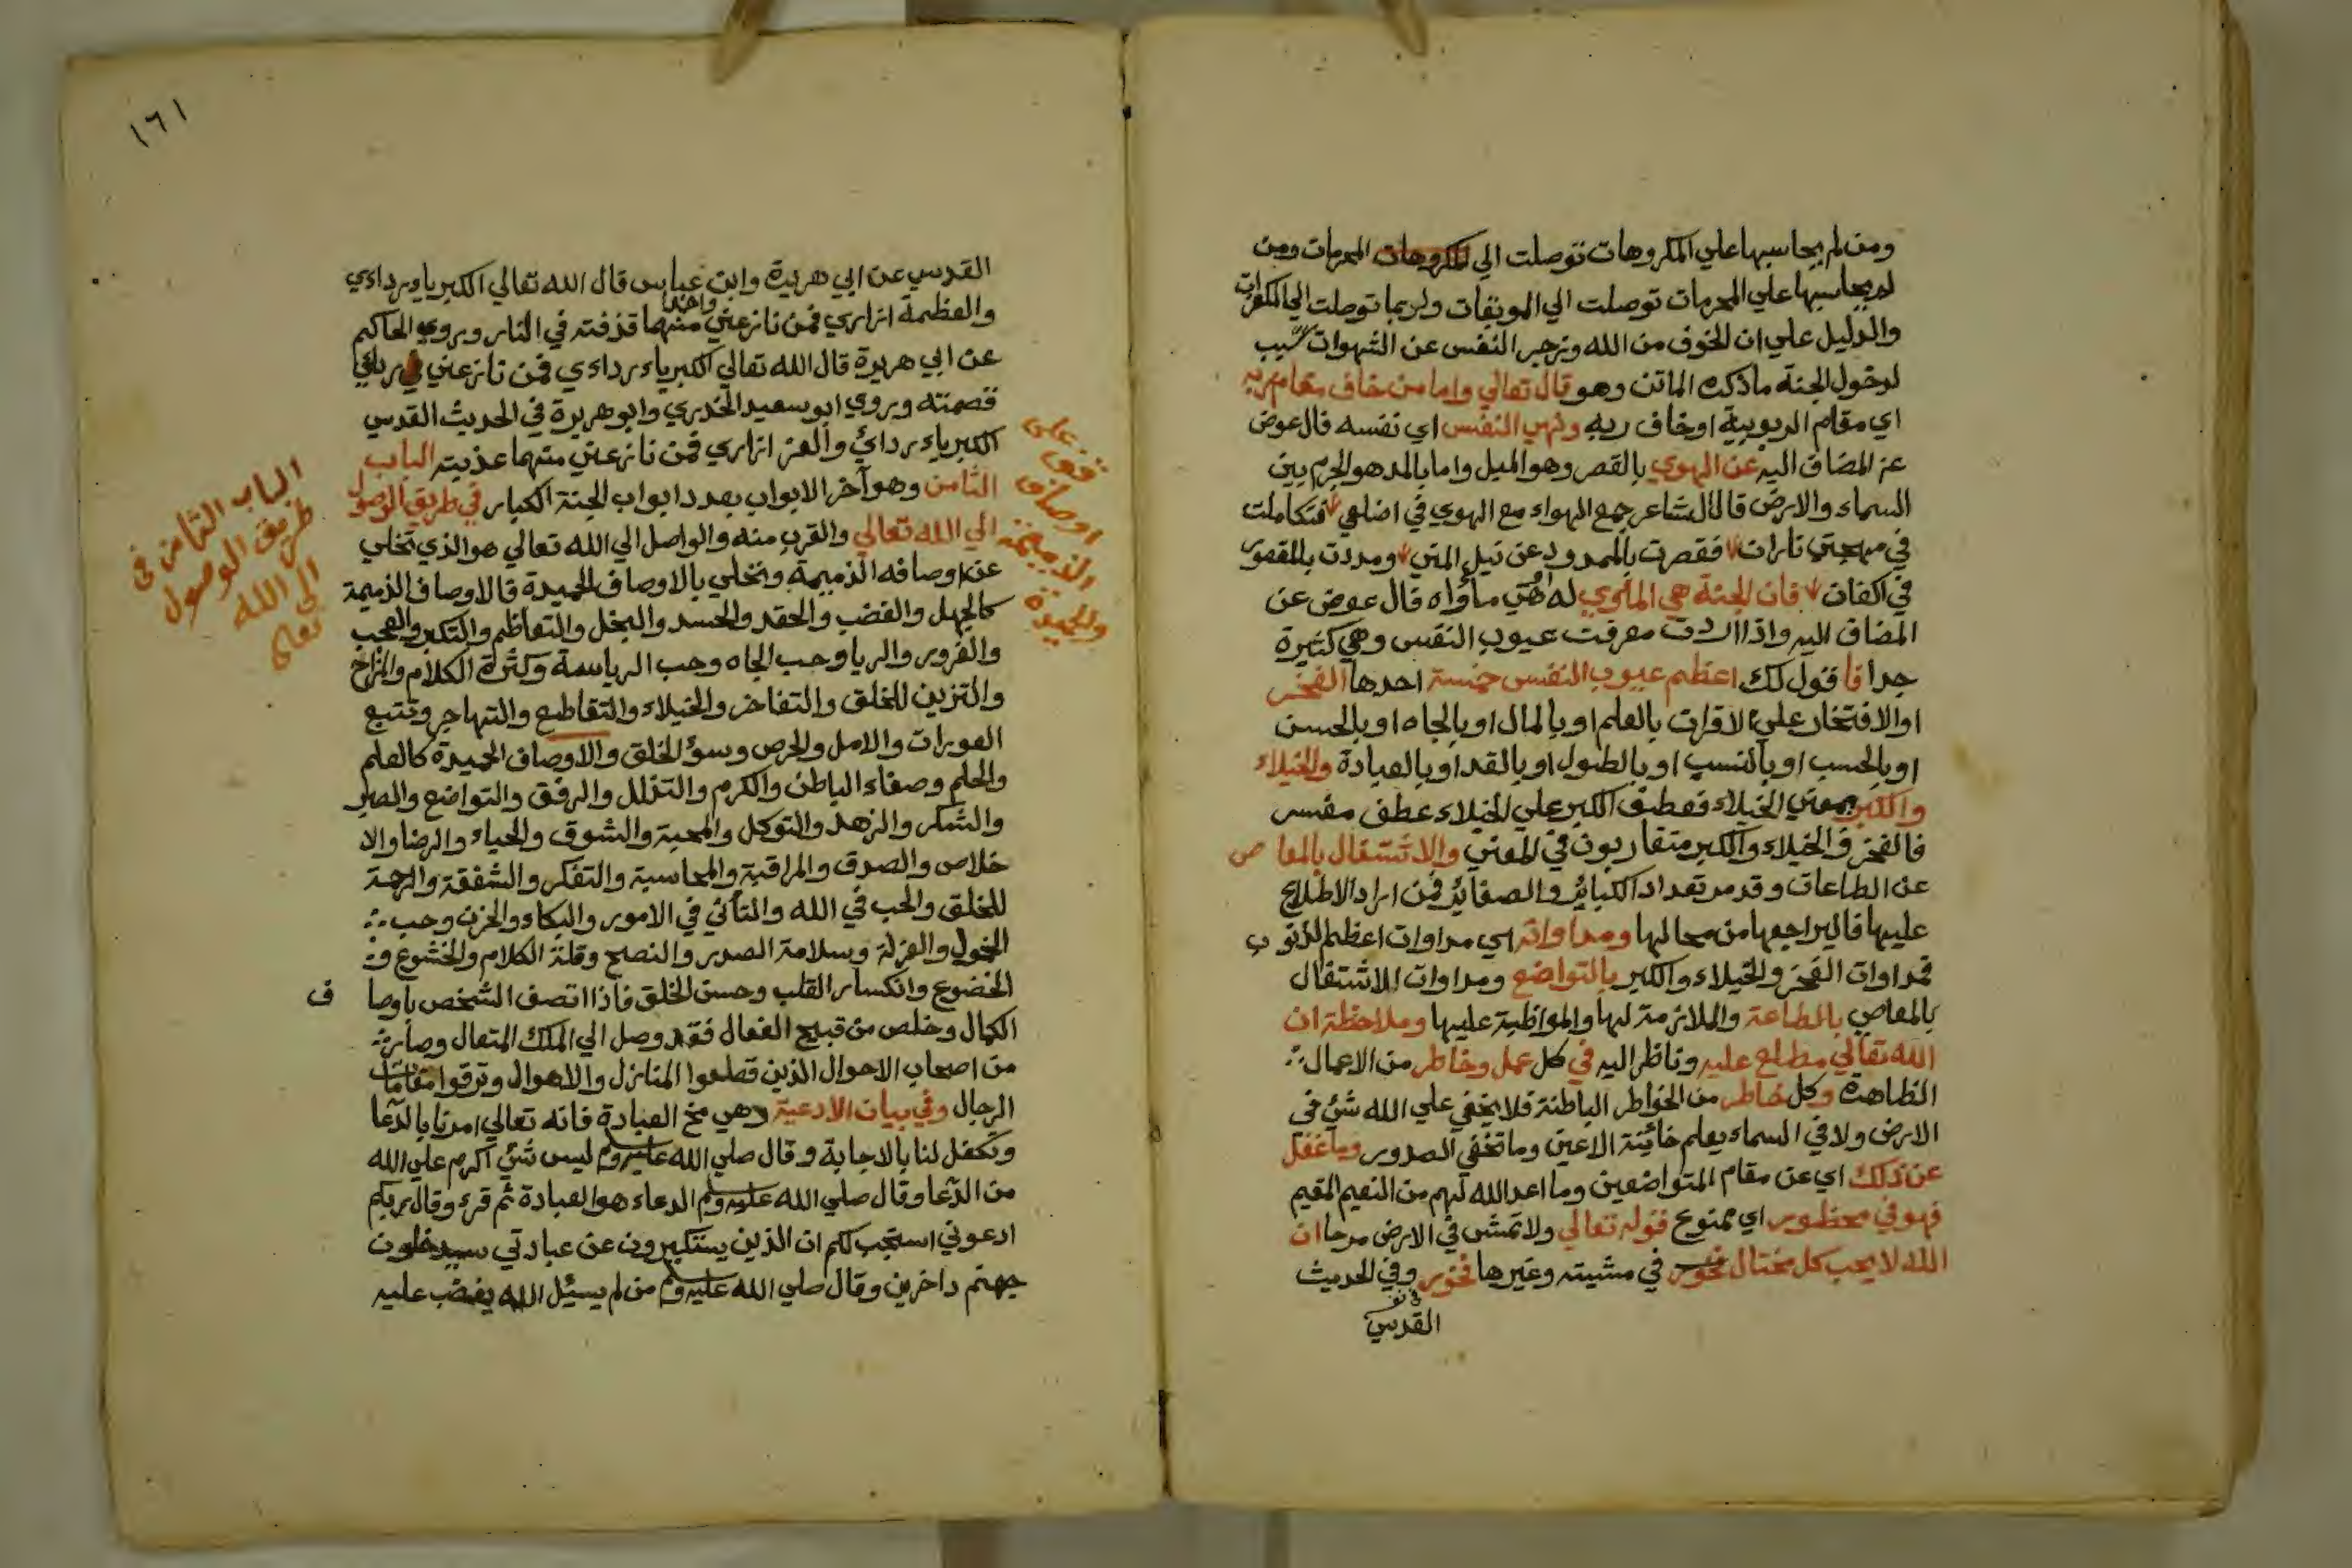 ومن لم يحاسبها علي المكروهات توصلت الي المكروهات المحرمات ومن
لم يحاسبها علي المحرمات توصلت الي الموبقات ولربما توصلت الي المكفرات
والدليل علي ان الخوف من الله وزجر النفس عن الشهوات سبب
لدخول الجنة ما ذكره الماتن وهو قال تعالي واما من خاف مقام ربه
اي مقام الربوبية او خاف ربه ونهي النفس اي نفسه فال عوض
عن المضاف اليه عن الهوي بالقصر وهو الميل واما بالمد هو الجرم بين
السماء والارض قال الشاعر جمع الهواء مع الهوي في اضلعي فتكاملت
في مهجتي ناران فقصرت بالممدود عن نيل المني ومددت بالمقصور
في اكفان فان الجنة هي الماوي له اي مأواه فال عوض عن
المضاف اليه واذا اردت معرفت عيوب النفس وهي كثيرة
جدا فاقول لك اعظم عيوب النفس خمسة احدها الفخر
او الافتخار علي الاقران بالعلم او بالمال او بالجاه او بالحسن
او بالحسب او بالنسب او بالطول او بالقد او بالعبادة والخيلاء
والكبر بمعني الخيلاء فعطف الكبر علي الخيلاء عطف مفسر
فالفخر والخيلاء والكبر متقاربون في المعني والاشتغال بالمعاص
عن الطاعات وقد مر تعداد الكبائر والصغائر فمن اراد الاطلاع
عليها فاليراجعها من محالها ومداواته اي مداوات اعظم الذنوب
فمداوات الفخر والخيلاء والكبر بالتواضع ومداوات الاشتغال
بالمعاصي بالطاعة والملازمة لها والمواظبة عليها وملاحظة ان
الله تعالي مطلع عليه وناظر اليه في كل عمل وخاطر من الاعمال
الظاهرة وكل خاطر من الخواطر الباطنة فلا يخفي علي الله شئ في
الارض ولا في السماء يعلم خائنة الاعين وما تخفي الصدور وما غفل
عن ذلك اي عن مقام المتواضعين وما اعد الله لهم من النعيم المقيم
فهو في محظور اي ممنوع قوله تعالي ولا تمش في الارض مرحا ان
الله لا يحب كل مختال فخور في مشيته وغيرها فخور وفي الحديث
القدسي
١٦١
القدسي عن ابي هريرة وابن عباس قال الله تعالي الكبريا ردائي
والعظمة ازاري فمن نازعني واحدا منهما قذفته في النار وروي الحاكم
عن ابي هريرة قال الله تعالي الكبرياء ردائي فمن نازعني في ردائي
قصمته وروي ابو سعيد الخدري وابو هريرة في الحديث القدسي
الكبرياء ردائي والعز ازاري فمن نازعني منهما عذبته الباب
الثامن وهو آخر الابواب بعدد ابواب الجنة الكبار في طريق الوصول
الي الله تعالي والقرب منه والواصل الي الله تعالي هو الذي تخلي
عن اوصافه الذميمة وتحلي بالاوصاف الحميدة فالاوصاف الذميمة
كالجهل والغضب والحقد والحسد والبخل والتعاظم والتكبر والعجب
والغرور والريا وحب الجاه وحب الرياسة وكثرة الكلام والمزاح
والتزين للخلق والتفاخر والخيلاء والتقاطع والتهاجر وتتبع
العورات والامل والحرص وسوء الخلق والاوصاف الحميدة كالعلم
والحلم وصفاء الباطن والكرم والتذلل والرفق والتواضع والصبر
والشكر والزهد والتوكل والمحبة والشوق والحياء والرضا والا
خلاص والصدق والمراقبة والمحاسبة والتفكر والشفقة والرحمة
للخلق والحب في الله والتأني في الامور والبكاء والحزن وحب
الخمول والعزلة وسلامة الصدر والنصح وقلة الكلام والخشوع و
الخضوع وانكسار القلب وحسن الخلق فاذا اتصف الشخص باوصاف
الكمال وخلص من قبيح الفعال فقد وصل الي الملك المتعال وصار
من اصحاب الاحوال الذين قطعوا المنازل والاهوال وترقوا مقامات
الرجال وفي بيان الادعية وهي مخ العبادة فانه تعالي امرنا بالدعا
وتكفل لنا بالاجابة وقال صلي الله عليه وسلم ليس شئ اكرم علي الله
من الدعا وقال صلي الله عليه وسلم الدعاء هو العبادة ثم قرء وقال ربكم
ادعوني استجب لكم ان الذين يستكبرون عن عبادتي سيدخلون
جهنم داخرين وقال صلي الله عليه وسلم من لم يسئل الله يغضب عليه
قف على
اوصاف
الذميمة
والحميدة
الباب الثامن في
طريق الوصول
الى الله
تعالى